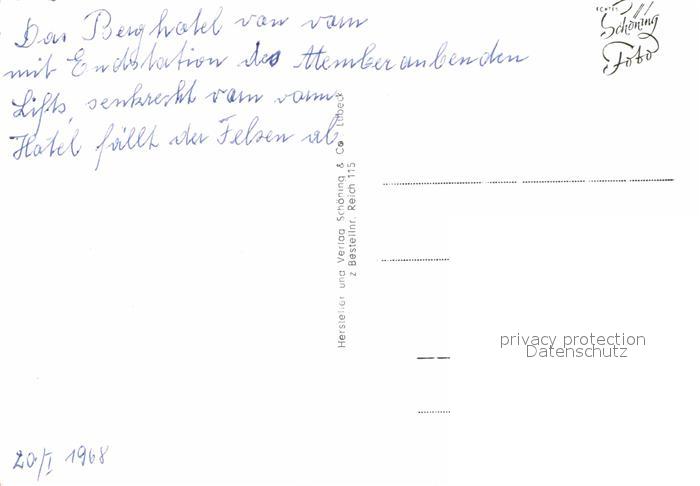 Das Berghotel von vorn
mit Endstation des Atemberaubenden
Lifts, senkrecht vorn vorm
Hotel fällt der Felsen ab
20/I 1968
ECHTES
Schöning
Foto
Hersteller und Verlag Schöning & Co Lübeck
z Bestellnr. Reich 115
privacy protection
Datenschutz